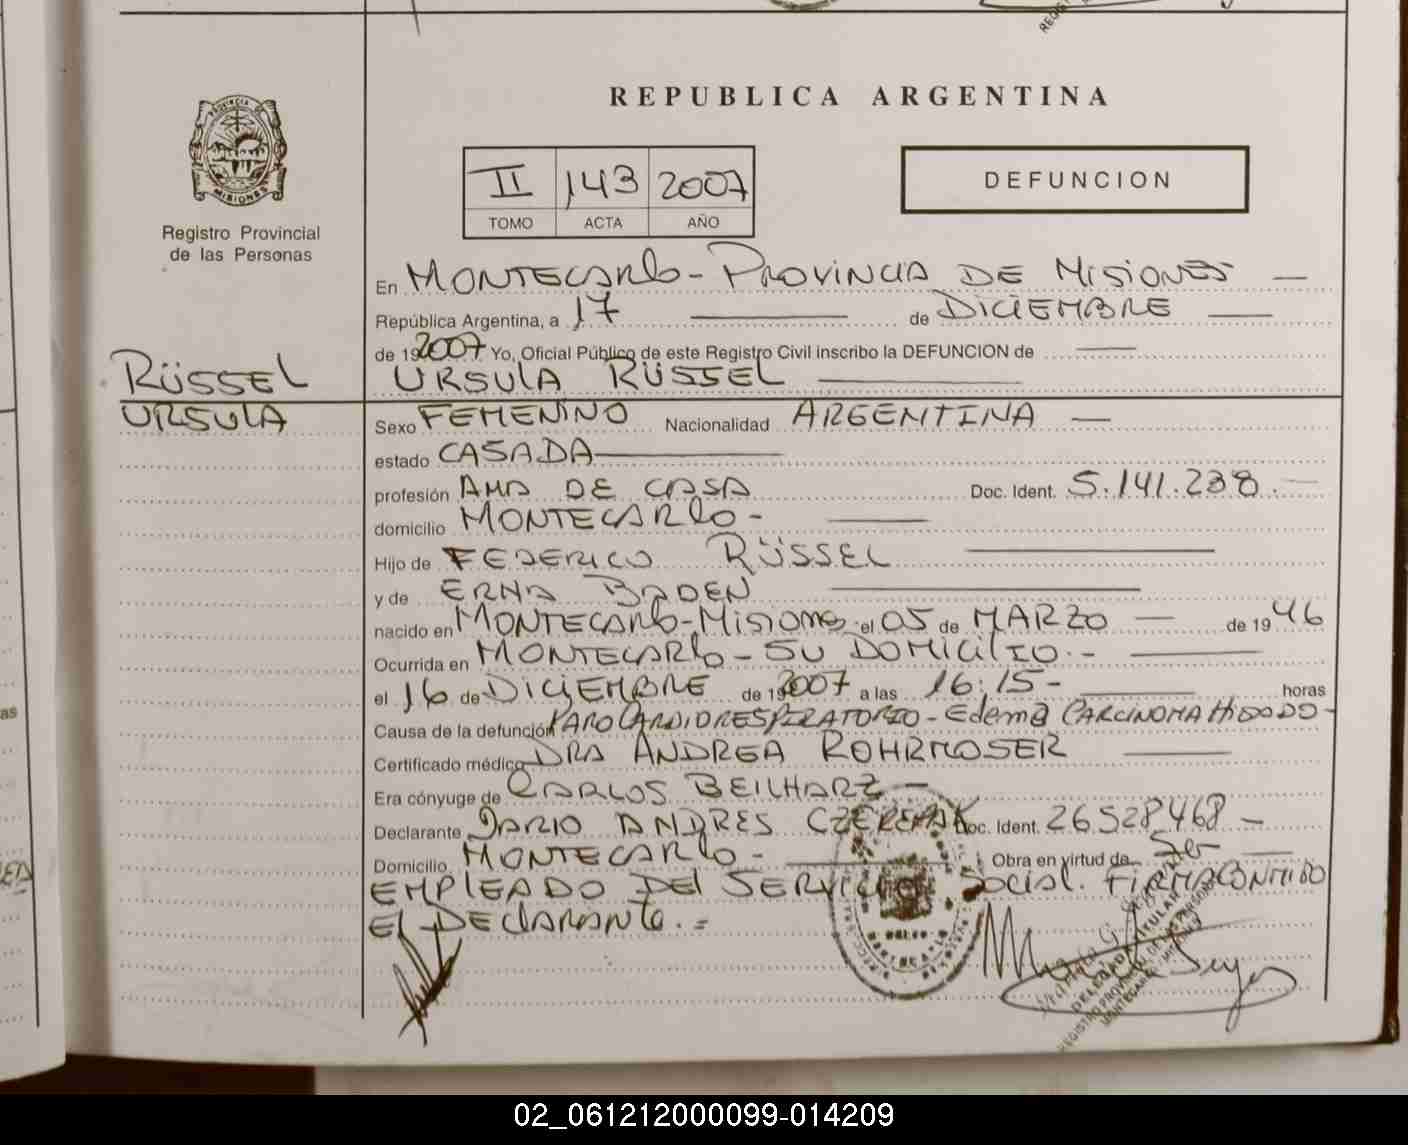 REPUBLICA ARGENTINA
PROVINCIA DE
MISIONES
Registro Provincial
de las Personas
II 143 2007
TOMO ACTA AÑO
DEFUNCION
En MONTECARLO - PROVINCIA DE MISIONES —
República Argentina, a 17 — de DICIEMBRE —
de 19 2007 Yo, Oficial Público de este Registro Civil inscribo la DEFUNCION de —
RÜSSEL
URSULA RÜSSEL —
URSULA
Sexo FEMENINO Nacionalidad ARGENTINA —
estado CASADA —
profesión AMA DE CASA Doc. Ident. 5.141.238. —
domicilio MONTECARLO - —
Hijo de FEDERICO RÜSSEL —
y de ERNA BADEN —
nacido en MONTECARLO - MISIONES el 05 de MARZO — de 19 46
Ocurrida en MONTECARLO - SU DOMICILIO.- —
el 16 de DICIEMBRE de 19 2007 a las 16:15 - — horas
Causa de la defunción PARO CARDIORESPIRATORIO - Edema CARCINOMA
Certificado médico DRA ANDREA ROHRMOSER —
Era cónyuge de CARLOS BEILHARZ —
Declarante DARIO ANDRES Doc. Ident. 26528468 —
Domicilio MONTECARLO - — Obra en virtud de Ser —
EMPLEADO DEL SERVICIO SOCIAL. FIRMA CONMIGO
EL DECLARANTE. =
DELEGADA TITULAR
REGISTRO PROVINCIAL DE LAS PERSONAS
02_061212000099-014209